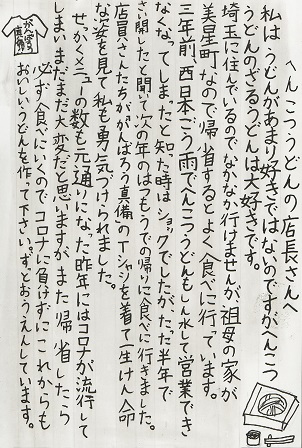 へんこつうどんの店長さんへ
私は、うどんがあまり好きではないのですが、へんこつ
うどんのざるうどんは大好きです。
埼玉に住んでいるのでなかなか行けませんが、祖母の家が
美星町なので帰省するとよく食べに行っています。
三年前、西日本ごう雨でへんこつうどんもしん水して営業でき
なくなってしまったと知った時はショックでしたが、たった半年で
さい開したと聞いて次の年のはつもうでの帰りに食べに行きました。
店員さんたちが「がんばろう真備」のTシャツを着て一生けん命
な姿を見て私も勇気づけられました。
せっかくメニューの数も元通りになった昨年にはコロナが流行して
しまい、まだまだ大変だと思いますがまた帰省したら
必ず食べにいくのでコロナに負けずにこれからも
おいしいうどんを作って下さい。ずっとおうえんしています。
がんばろう真備